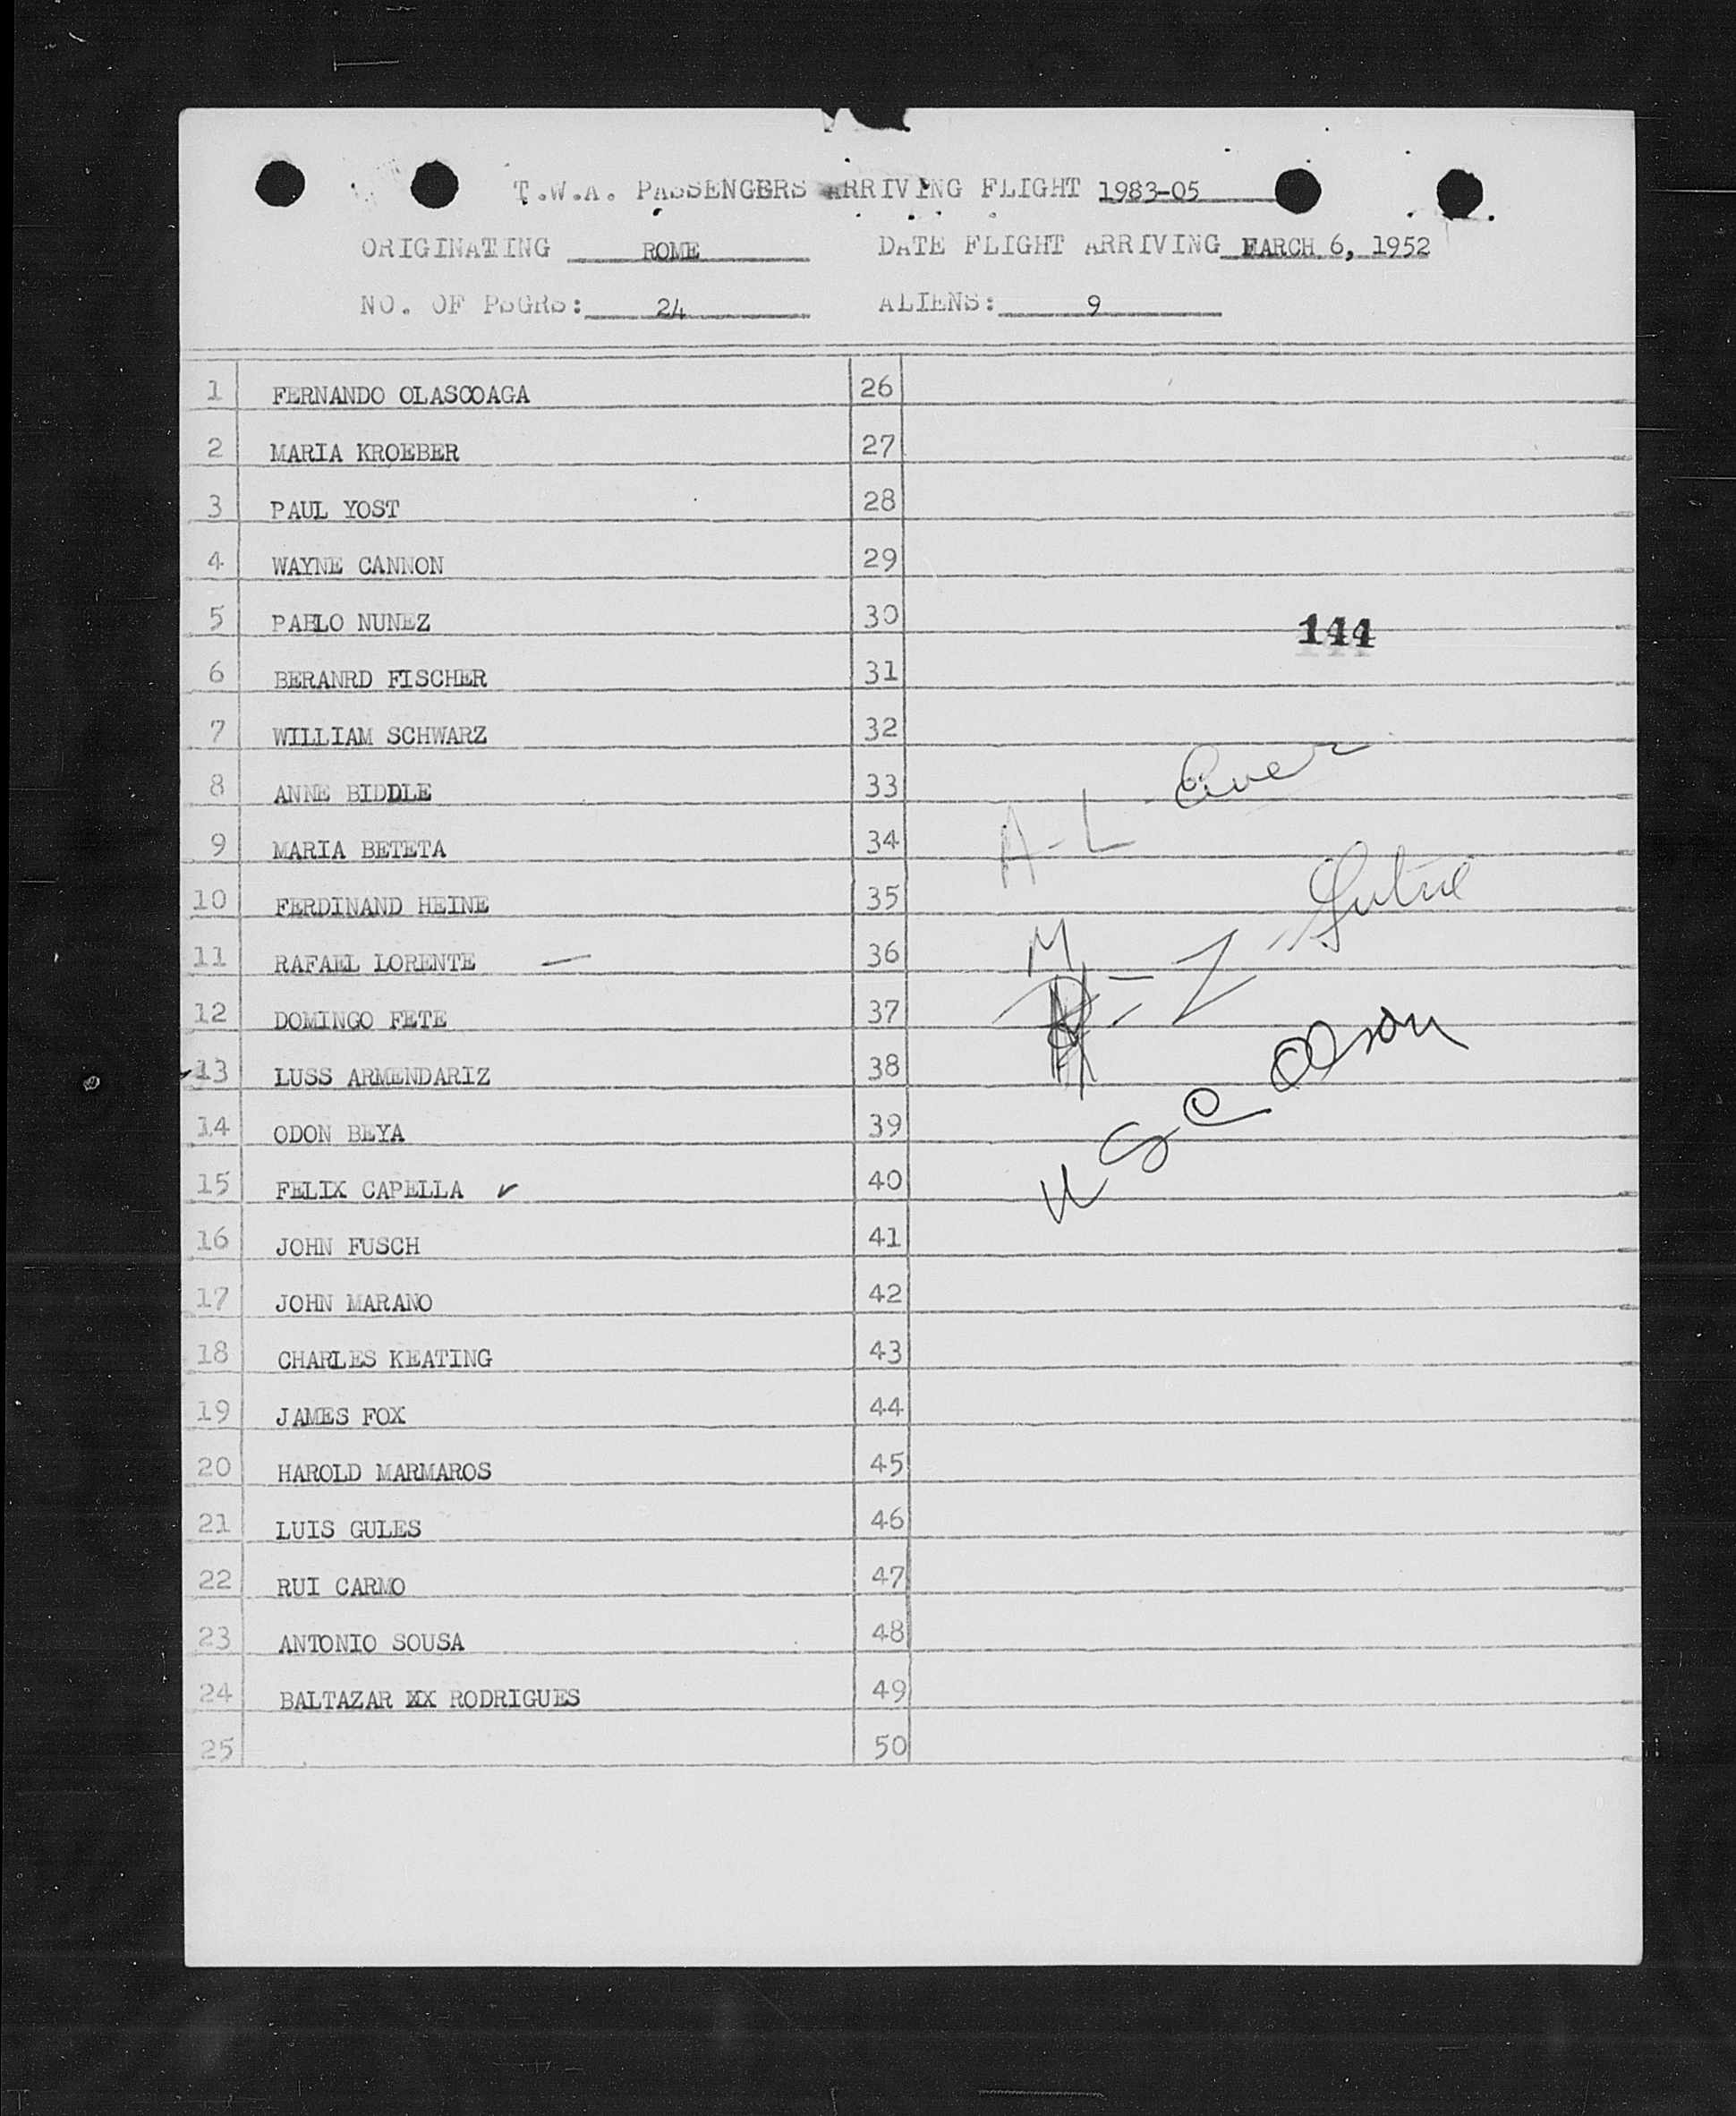 T.W.A. PASSENGERS ARRIVING FLIGHT 1983-05
ORIGINATING ROME DATE FLIGHT ARRIVING MARCH 6, 1952
NO. OF PSGRS: 24 ALIENS: 9
1 FERNANDO OLASCOAGA 26
2 MARIA KROEBER 27
3 PAUL YOST 28
4 WAYNE CANNON 29
5 PABLO NUNEZ 30
144
6 BERANRD FISCHER 31
7 WILLIAM SCHWARZ 32
8 ANNE BIDDLE 33
A-L
9 MARIA BETETA 34
10 FERDINAND HEINE 35
11 RAFAEL LORENTE 36
M - Z
12 DOMINGO FETE 37
13 LUSS ARMENDARIZ 38
14 ODON BEYA 39
USC Olson
15 FELIX CAPELLA ✓ 40
16 JOHN FUSCH 41
17 JOHN MARANO 42
18 CHARLES KEATING 43
19 JAMES FOX 44
20 HAROLD MARMAROS 45
21 LUIS GULES 46
22 RUI CARMO 47
23 ANTONIO SOUSA 48
24 BALTAZAR XX RODRIGUES 49
25 50